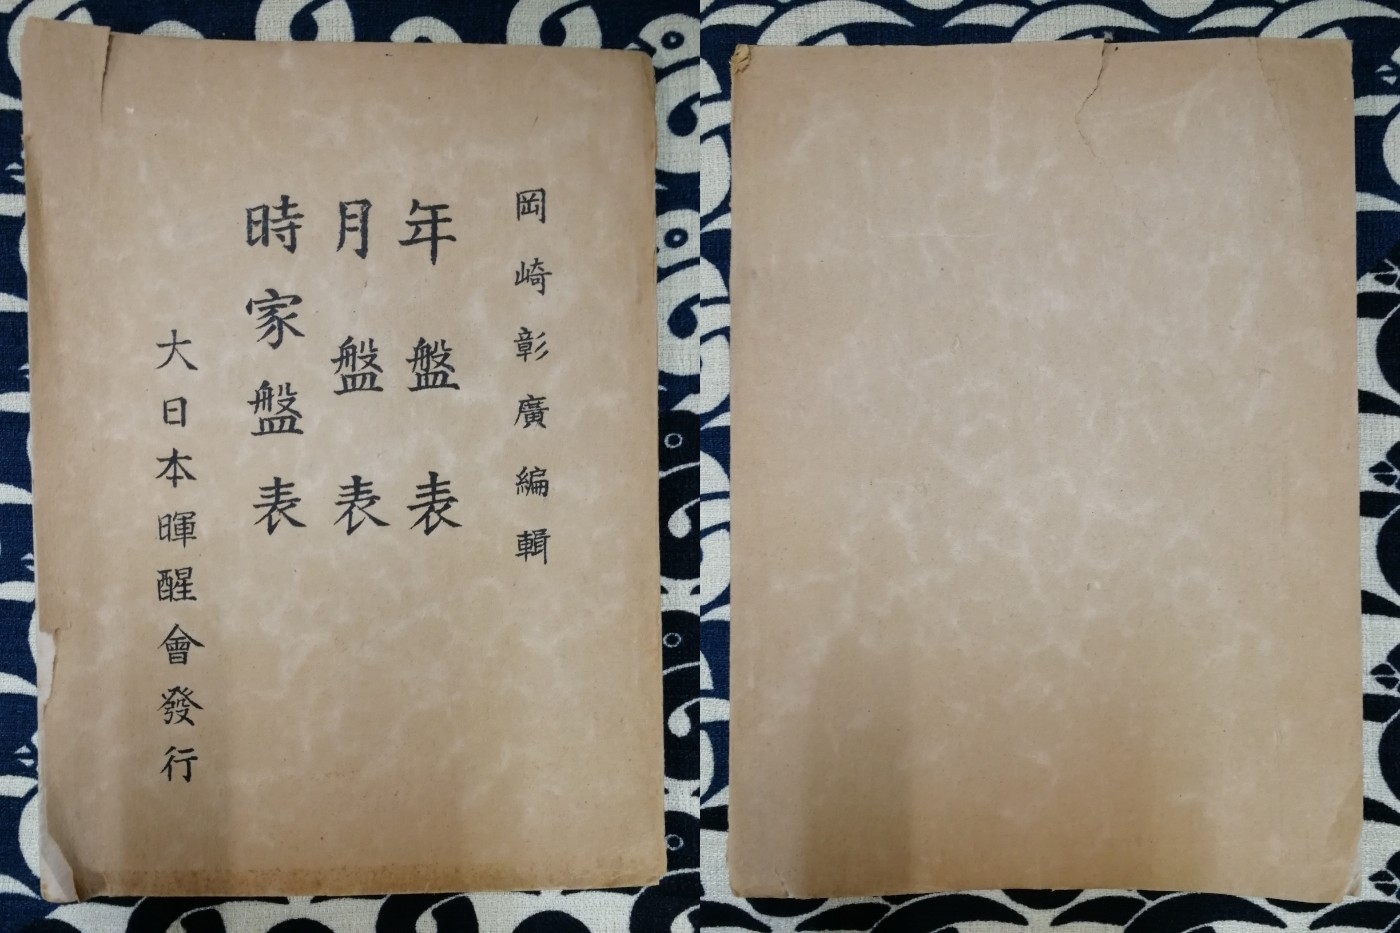 岡崎彰廣編輯
年盤表
月盤表
時家盤表
大日本暉醒會發行